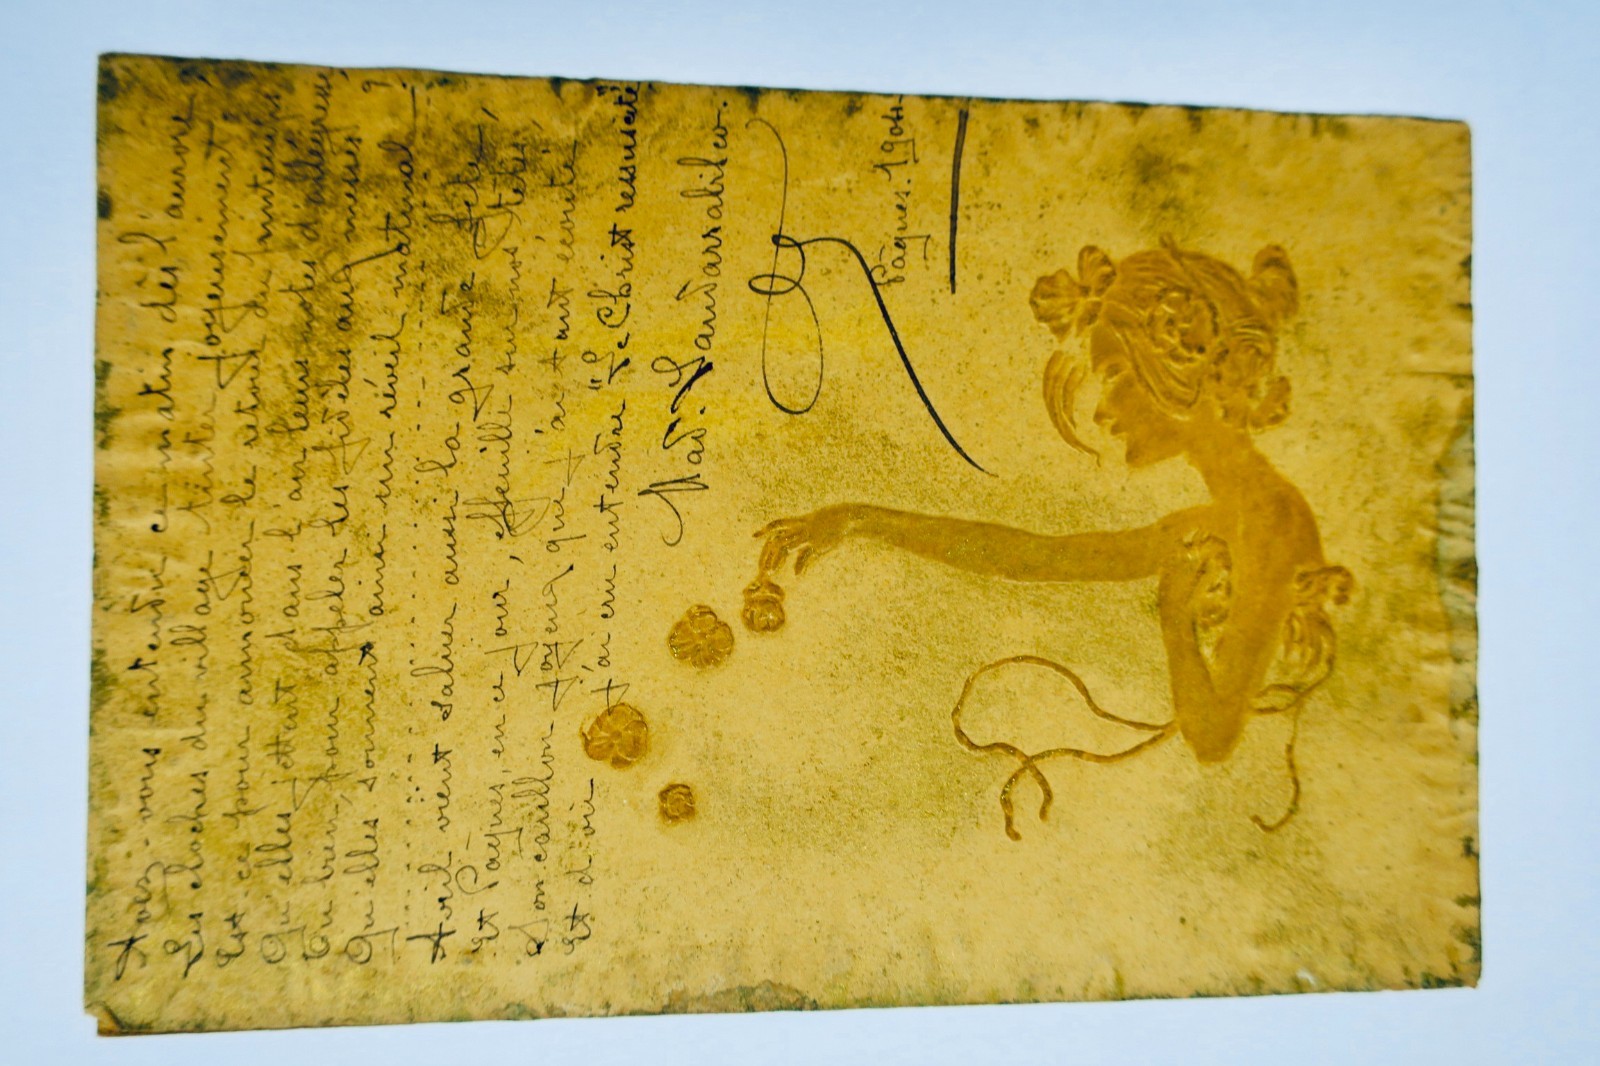 Avez-vous entendu ce matin dès l'aurore
Les cloches du village tinter joyeusement ?
Est-ce pour annoncer le retour du printemps
Qu'elles jettent dans l'air leurs notes d'allégresse,
Ou bien, pour appeler les fidèles aux messes
Qu'elles sonnent ainsi un réveil matinal ?
Avril vient saluer aussi la grande fête,
Et Pâques, en ce jour, effeuille sur nos têtes,
Son carillon joyeux que j'ai tant écouté
Et d'où j'ai cru entendre "Le Christ ressuscité"
Mad.
Pâques. 1904